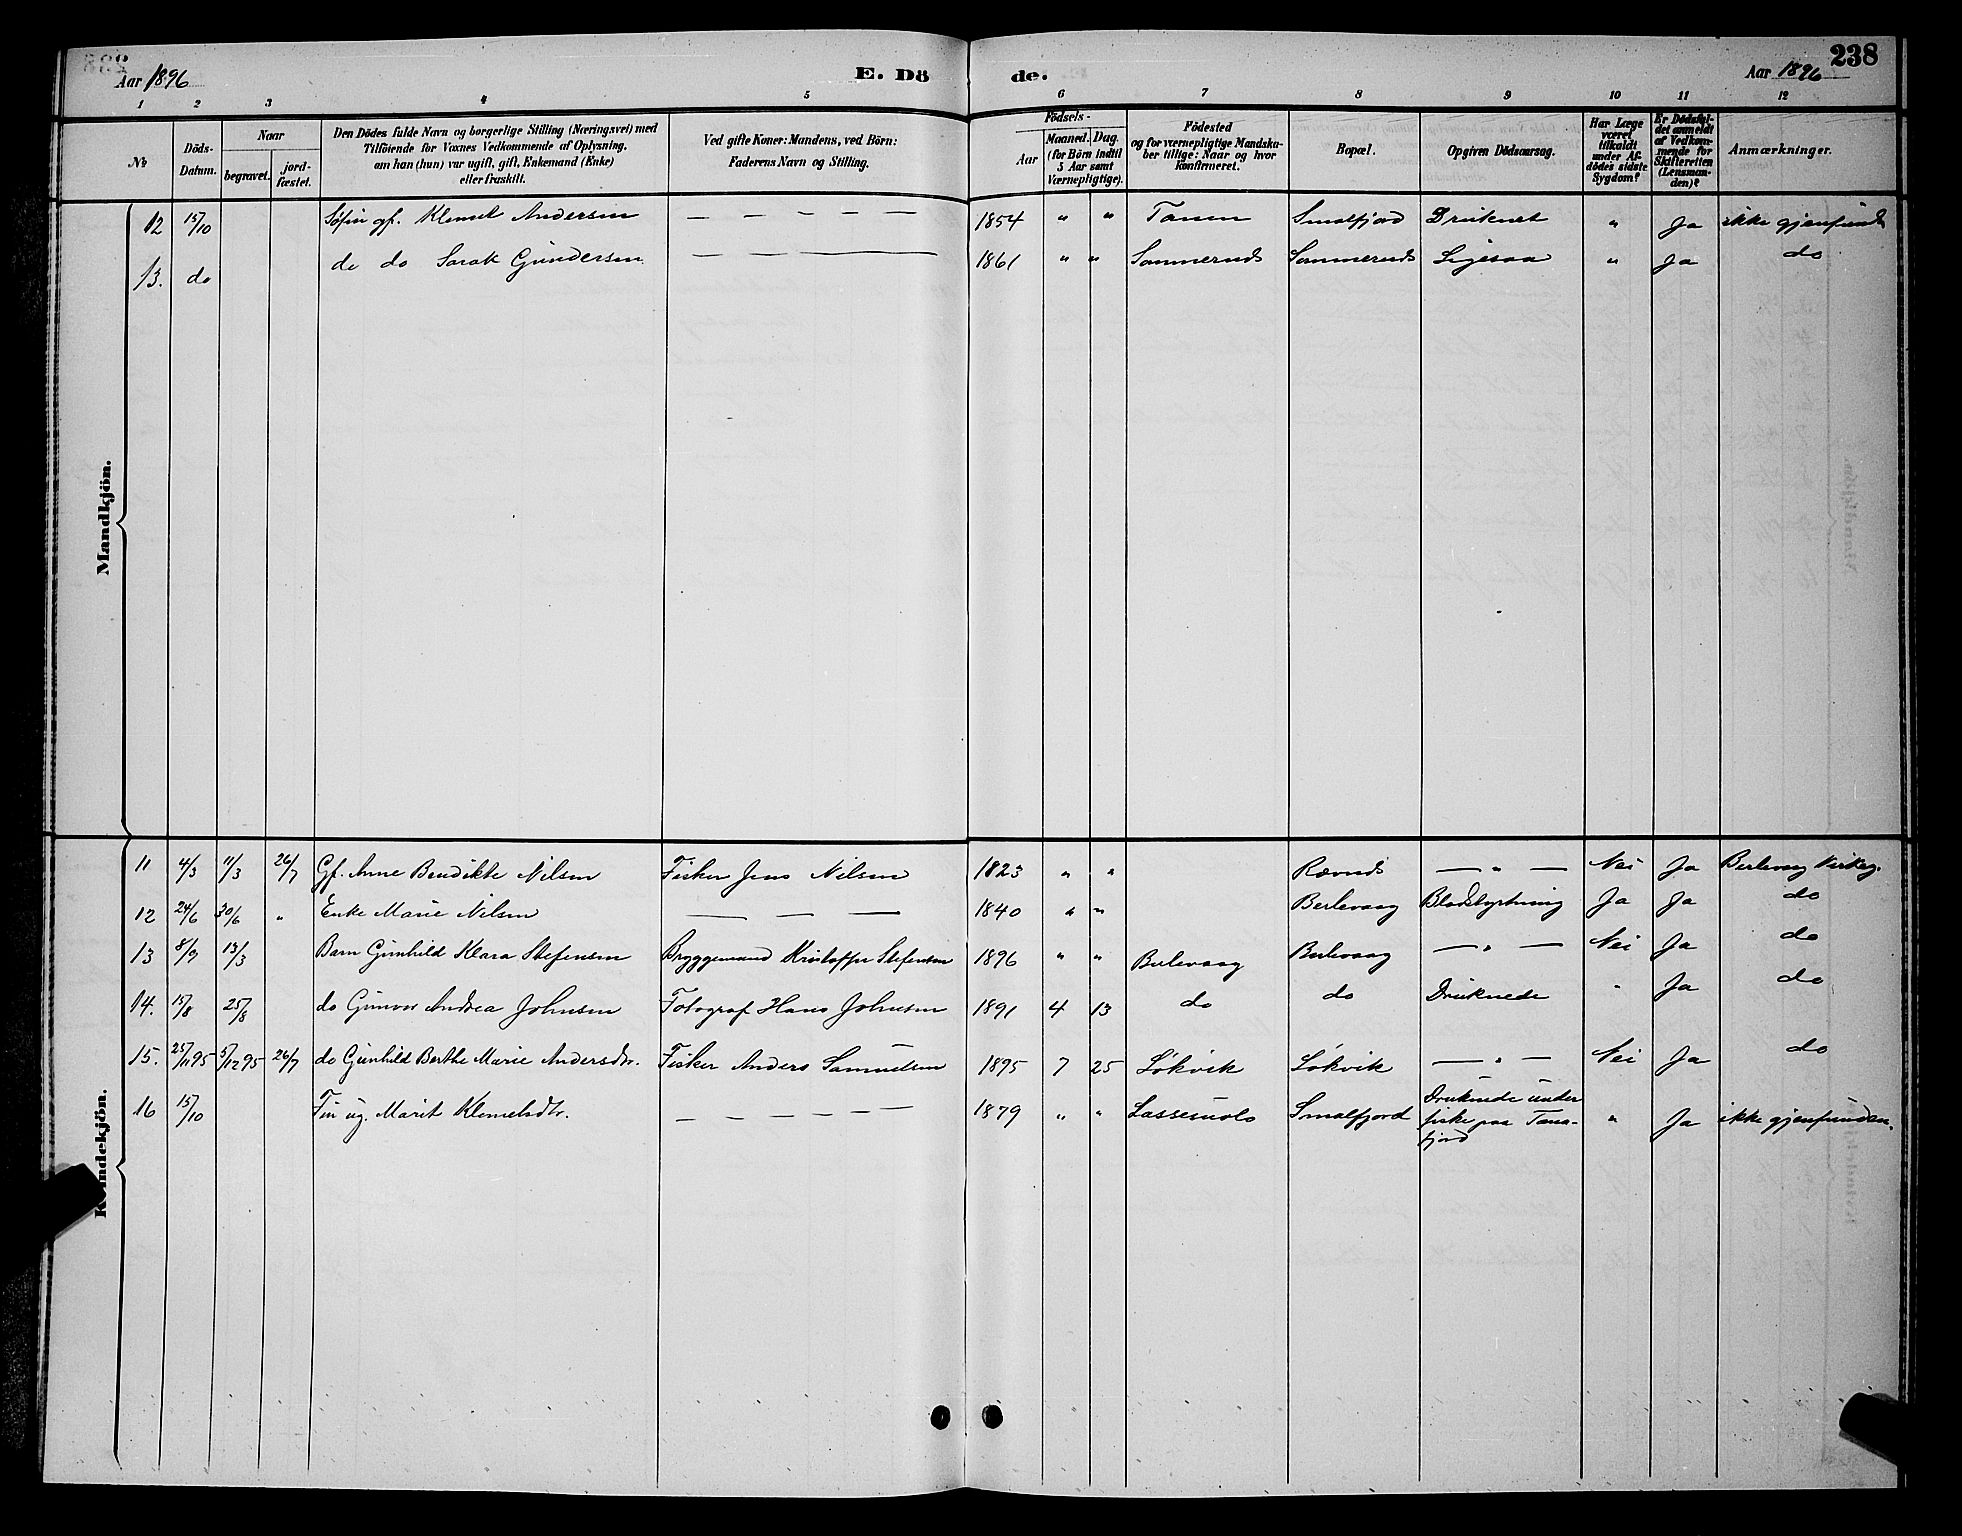 Aar 1896 E. Dö de. Aar 1896 238
1 2 3 4 5 6 7 8 9 10 11 12
№
Döds-Datum.
Naar
begravet.
jordfæstet.
Den Dödes fulde Navn og borgerlige Stilling (Næringsvei) med
Tilföiende for Voxnes Vedkommende af Oplysning,
om han (hun) var ugift, gift, Enkemand (Enke)
eller fraskilt.
Ved gifte Koner: Mandens, ved Börn:
Faderens Navn og Stilling.
Födsels-
Aar
Maaned. Dag.
(for Börn indtil
5 Aar samt
Værnepligtige).
Födested
og for værnepligtige Mandskaber tillige: Naar og hvor
konfirmeret.
Bopæl.
Opgiven Dödsaarsag.
Har Læge
været
tilkaldt
under Afdödes sidste
Sygdom?
Er Dödsfaldet anmeldt
af Vedkommende for
Skifteretten
(Lensmanden)?
Anmærkninger.
Mandkjön.
12 15/10 Søfin gf. Klemet Andersen — — — — — 1854 " " Tanen Smalfjord Druknet " Ja ikke gjenfund
13. do de do Sarak Gundersen — — — 1861 " " Sommernds Sommernds Ligesaa " Ja do
Kvindekjön.
11 4/3 11/3 26/7 Gf. Anne Bendikte Nilsen Fisker Jens Nilsen 1823 " " Rævnds — " — Nei Ja Berlevaag Kirkeg.
12 24/6 30/6 " Enke Marie Nilsen — — — 1840 " " Berlevaag Blodstyrtning Ja Ja do
13 8/9 13/3 Barn Gunhild Klara Stefensen Bryggemand Kristoffer Stefensen 1896 " " Berlevaag Berlevaag — " — Nei Ja do
14. 15/8 25/8 do Gunvor Andrea Johnsen Fotograf Hans Johnsen 1891 4 13 do do Druknede " Ja do
15. 25/11 95 5/12 95 26/7 do Gunhild Berthe Marie Andersdtr. Fisker Anders Samuelsen 1895 7 25 Løkvik Løkvik — " — Nei Ja do
16 15/10 Fin ug. Marit Klemetsdtr. — — — — — 1879 " " Lassesuolo Smalfjord Druknede under
fiske paa Tana-
fjord " Ja ikke gjenfunden.